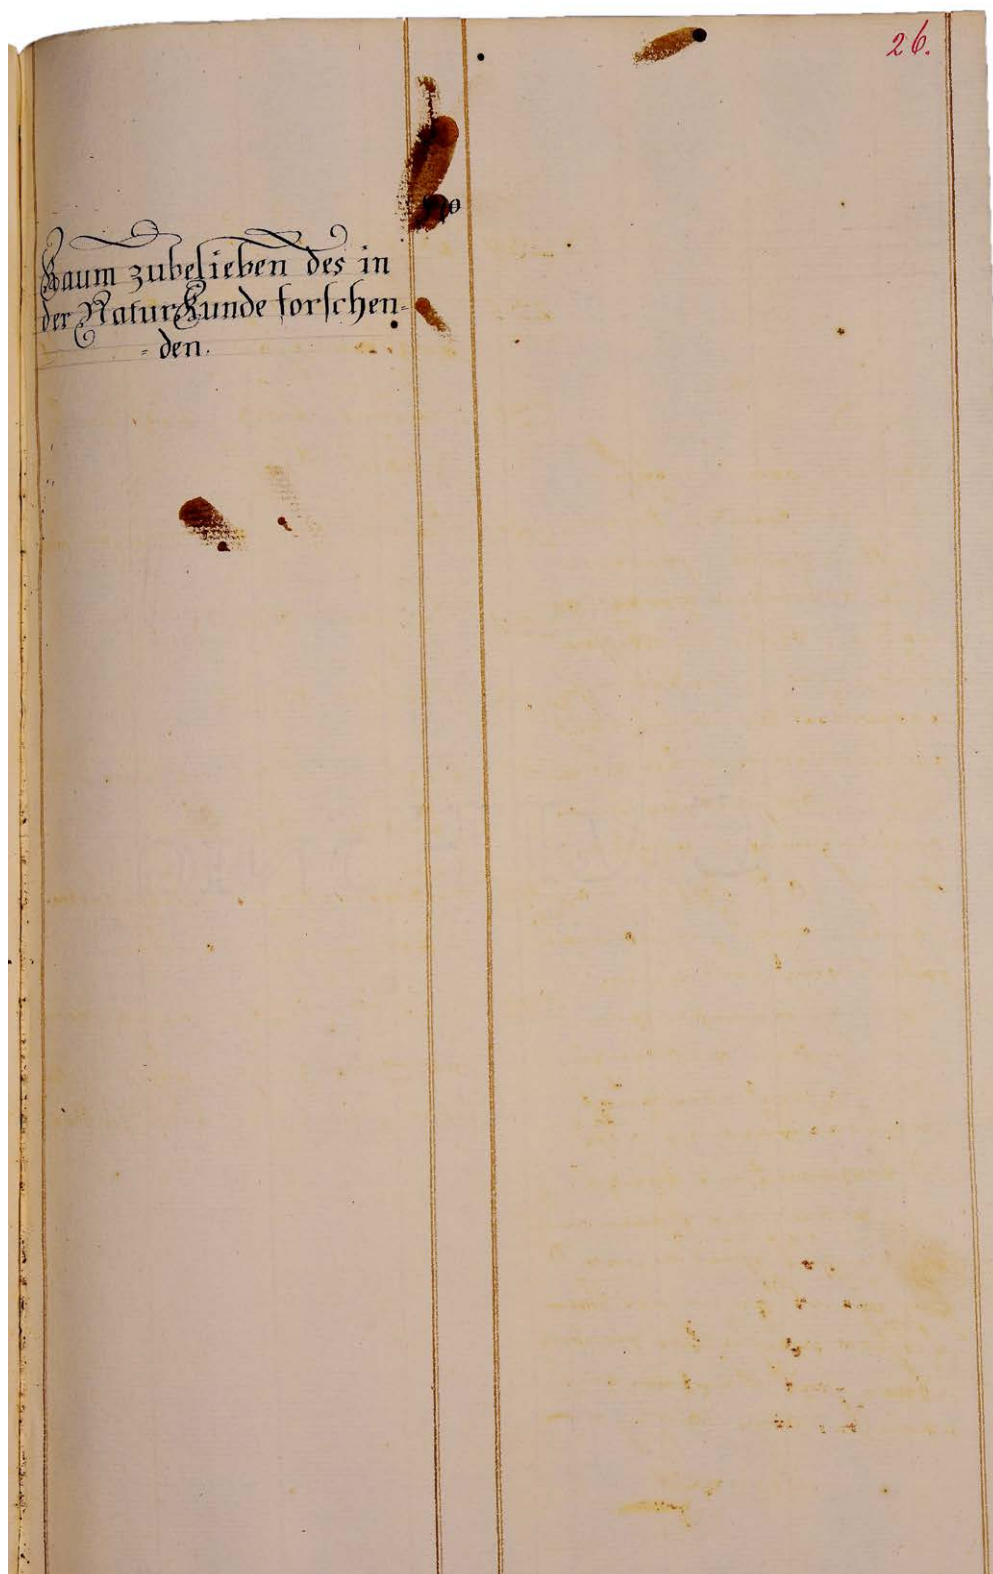 26.
Raum zubelieben des in
der NaturKunde forschen=
= den.